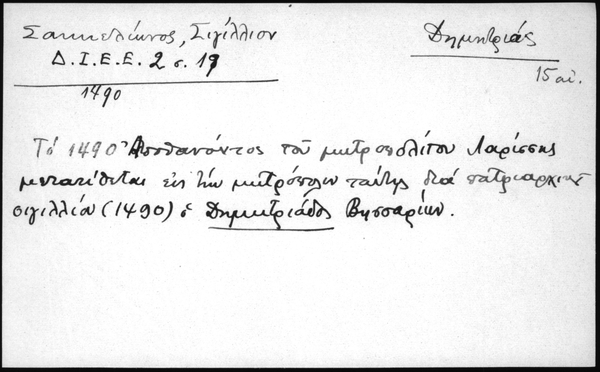 Σακκελίωνος, Σιγίλλιον
Δ.Ι.Ε.Ε. 2 σ. 19
1490
Δημητριάς
15 αἰ.
Τό 1490 Ἀποθανόντος τοῦ μητροπολίτου Λαρίσσης
μετατίθεται εἰς τήν μητρόπολιν ταύτης διά πατριαρχικοῦ
σιγιλλίου (1490) ὁ Δημητριάδος Βησσαρίων.